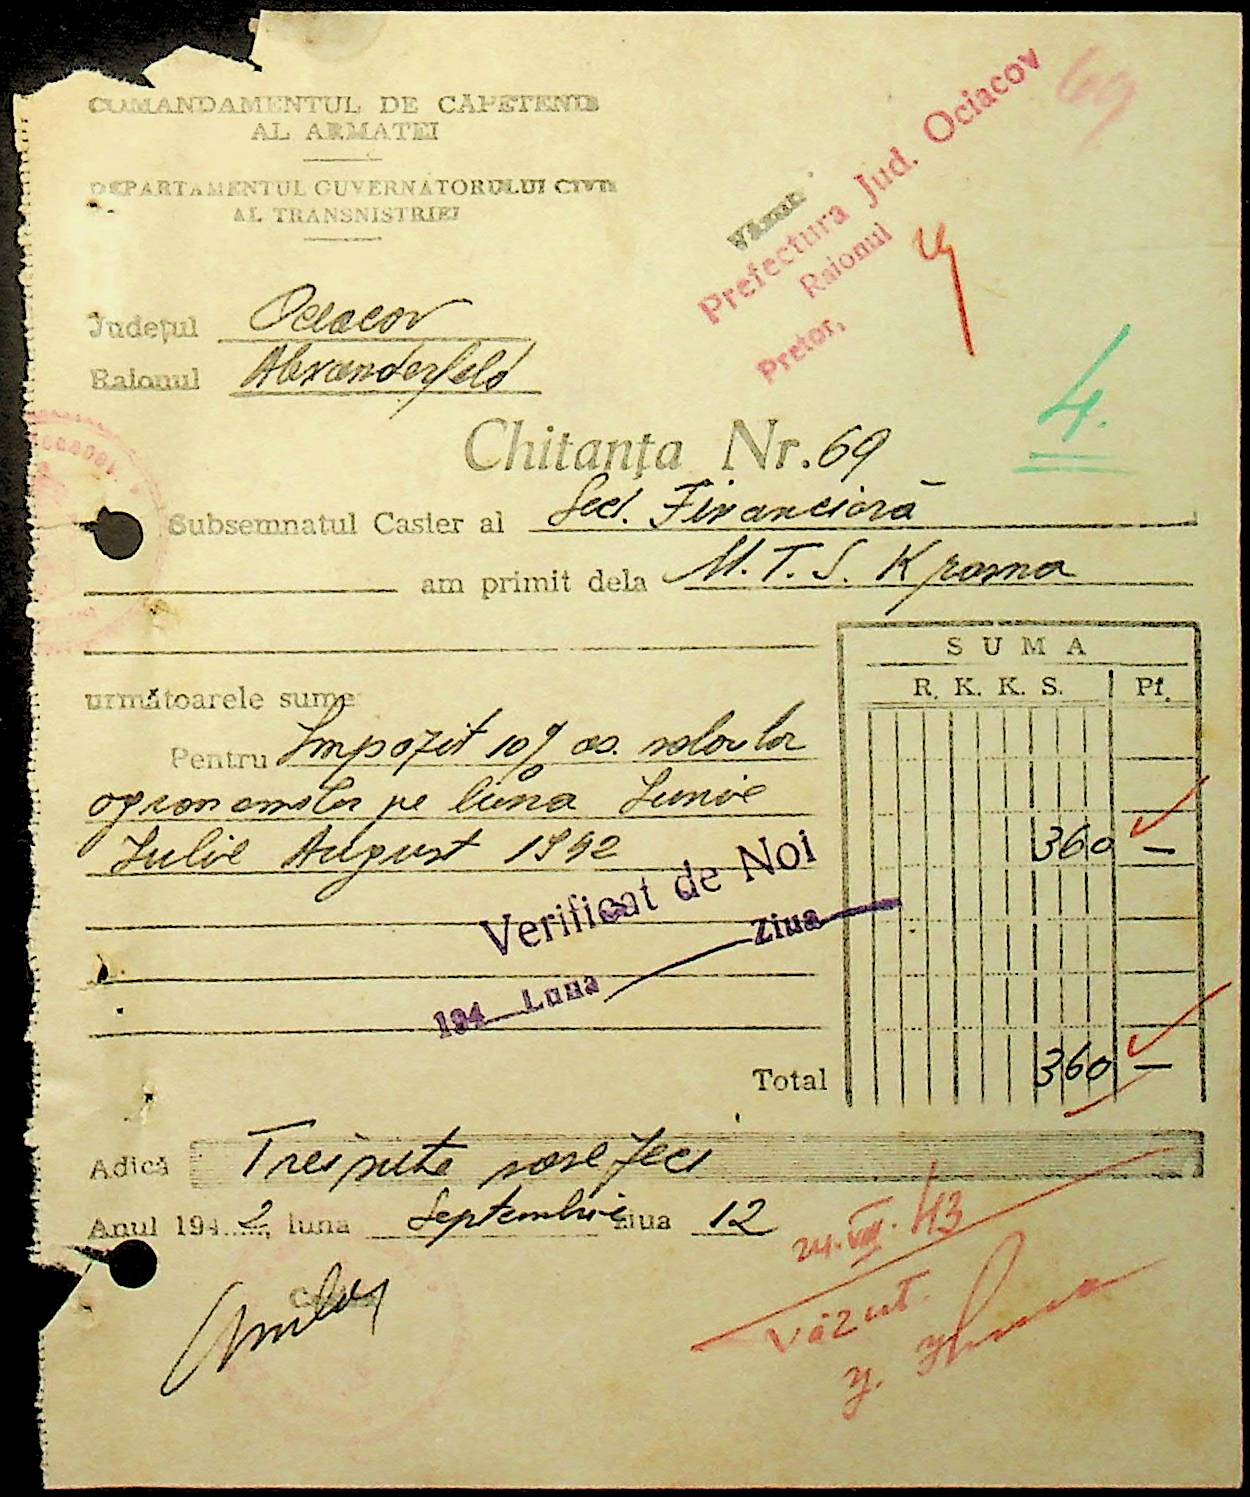 COMANDAMENTUL DE CAPETENIE
AL ARMATEI
DEPARTAMENTUL GUVERNATORULUI CIVIL
AL TRANSNISTRIEI
69
Văzut
Prefectura Jud. Ociacov
Raionul
Pretor,
Județul Ociacov
Raionul Alexanderfeld
4.
Chitanța Nr. 69
Subsemnatul Casier al Secț. Financiară
am primit dela M.T.S. Krasna
SUMA
R. K. K. S. Pf.
următoarele sume
Pentru Impozit 10% as.
agronomilor pe luna Iunie
Iulie August 1942
360 —
Verificat de Noi
194 Luna Ziua
Total 360 —
Adică Treisute șasezeci
Anul 1942, luna Septembrie ziua 12
24.VIII.43
Văzut